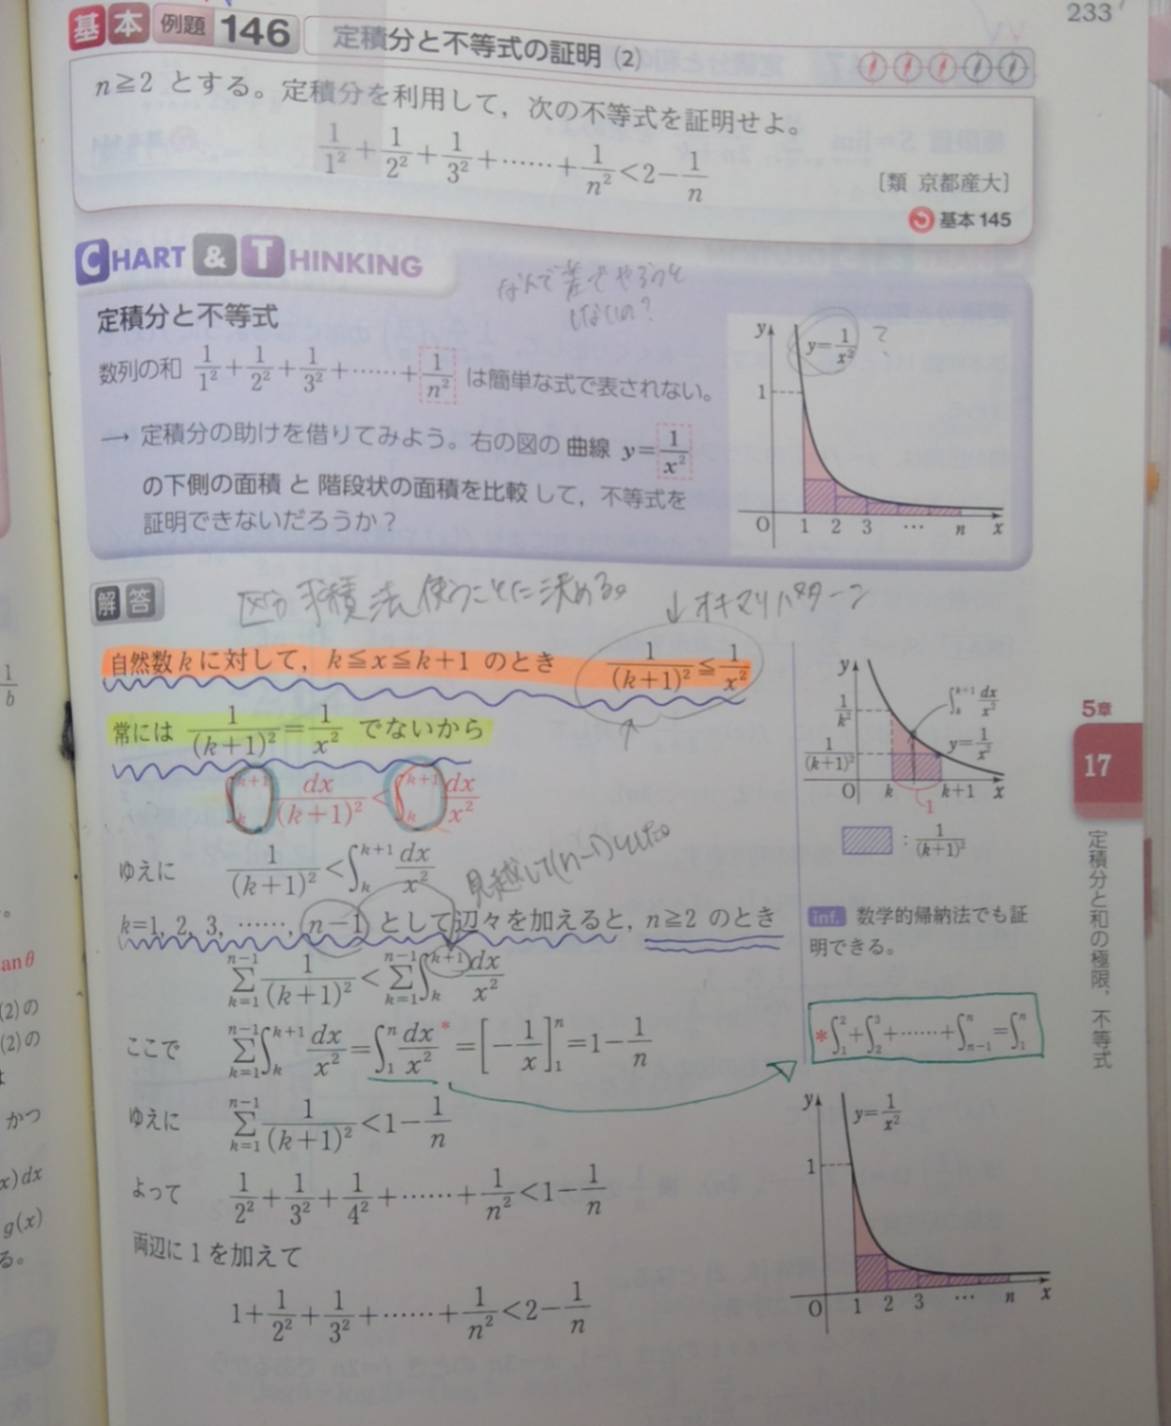 233
基本 例題 146 定積分と不等式の証明 (2)
n≧2 とする。定積分を利用して，次の不等式を証明せよ。
1/1² + 1/2² + 1/3² + …… + 1/n² < 2 − 1/n
［類 京都産大］
基本 145
CHART & THINKING
なんで差でやろうとしないの?
定積分と不等式
数列の和 1/1² + 1/2² + 1/3² + …… + 1/n² は簡単な式で表されない。
→ 定積分の助けを借りてみよう。右の図の 曲線 y = 1/x²
の下側の面積 と 階段状の面積を比較 して，不等式を
証明できないだろうか？
y y = 1/x² ?
1
O 1 2 3 … n x
解答
区分求積法使うことに決める。
↓オキマリパターン
自然数 k に対して，k≦x≦k+1 のとき 1/(k+1)² ≦ 1/x²
常には 1/(k+1)² = 1/x² でないから
∫_k^{k+1} dx/(k+1)² < ∫_k^{k+1} dx/x²
ゆえに 1/(k+1)² < ∫_k^{k+1} dx/x²
見越して(n−1)とした。
k=1, 2, 3, ……, n−1 として辺々を加えると，n≧2 のとき
∑_{k=1}^{n−1} 1/(k+1)² < ∑_{k=1}^{n−1} ∫_k^{k+1} dx/x²
ここで ∑_{k=1}^{n−1} ∫_k^{k+1} dx/x² = ∫_1^n dx/x² * = [−1/x]_1^n = 1 − 1/n
ゆえに ∑_{k=1}^{n−1} 1/(k+1)² < 1 − 1/n
よって 1/2² + 1/3² + 1/4² + …… + 1/n² < 1 − 1/n
両辺に 1 を加えて
1 + 1/2² + 1/3² + …… + 1/n² < 2 − 1/n
y
1/k² ∫_k^{k+1} dx/x²
1/(k+1)² y = 1/x²
O k k+1 x
1
: 1/(k+1)²
inf. 数学的帰納法でも証
明できる。
* ∫_1^2 + ∫_2^3 + …… + ∫_{n−1}^n = ∫_1^n
y y = 1/x²
1
O 1 2 3 … n x
5章
17
定積分と和の極限，不等式
1/b
。
an θ
(2)の
(2)の
かつ
x)dx
g(x)
る。